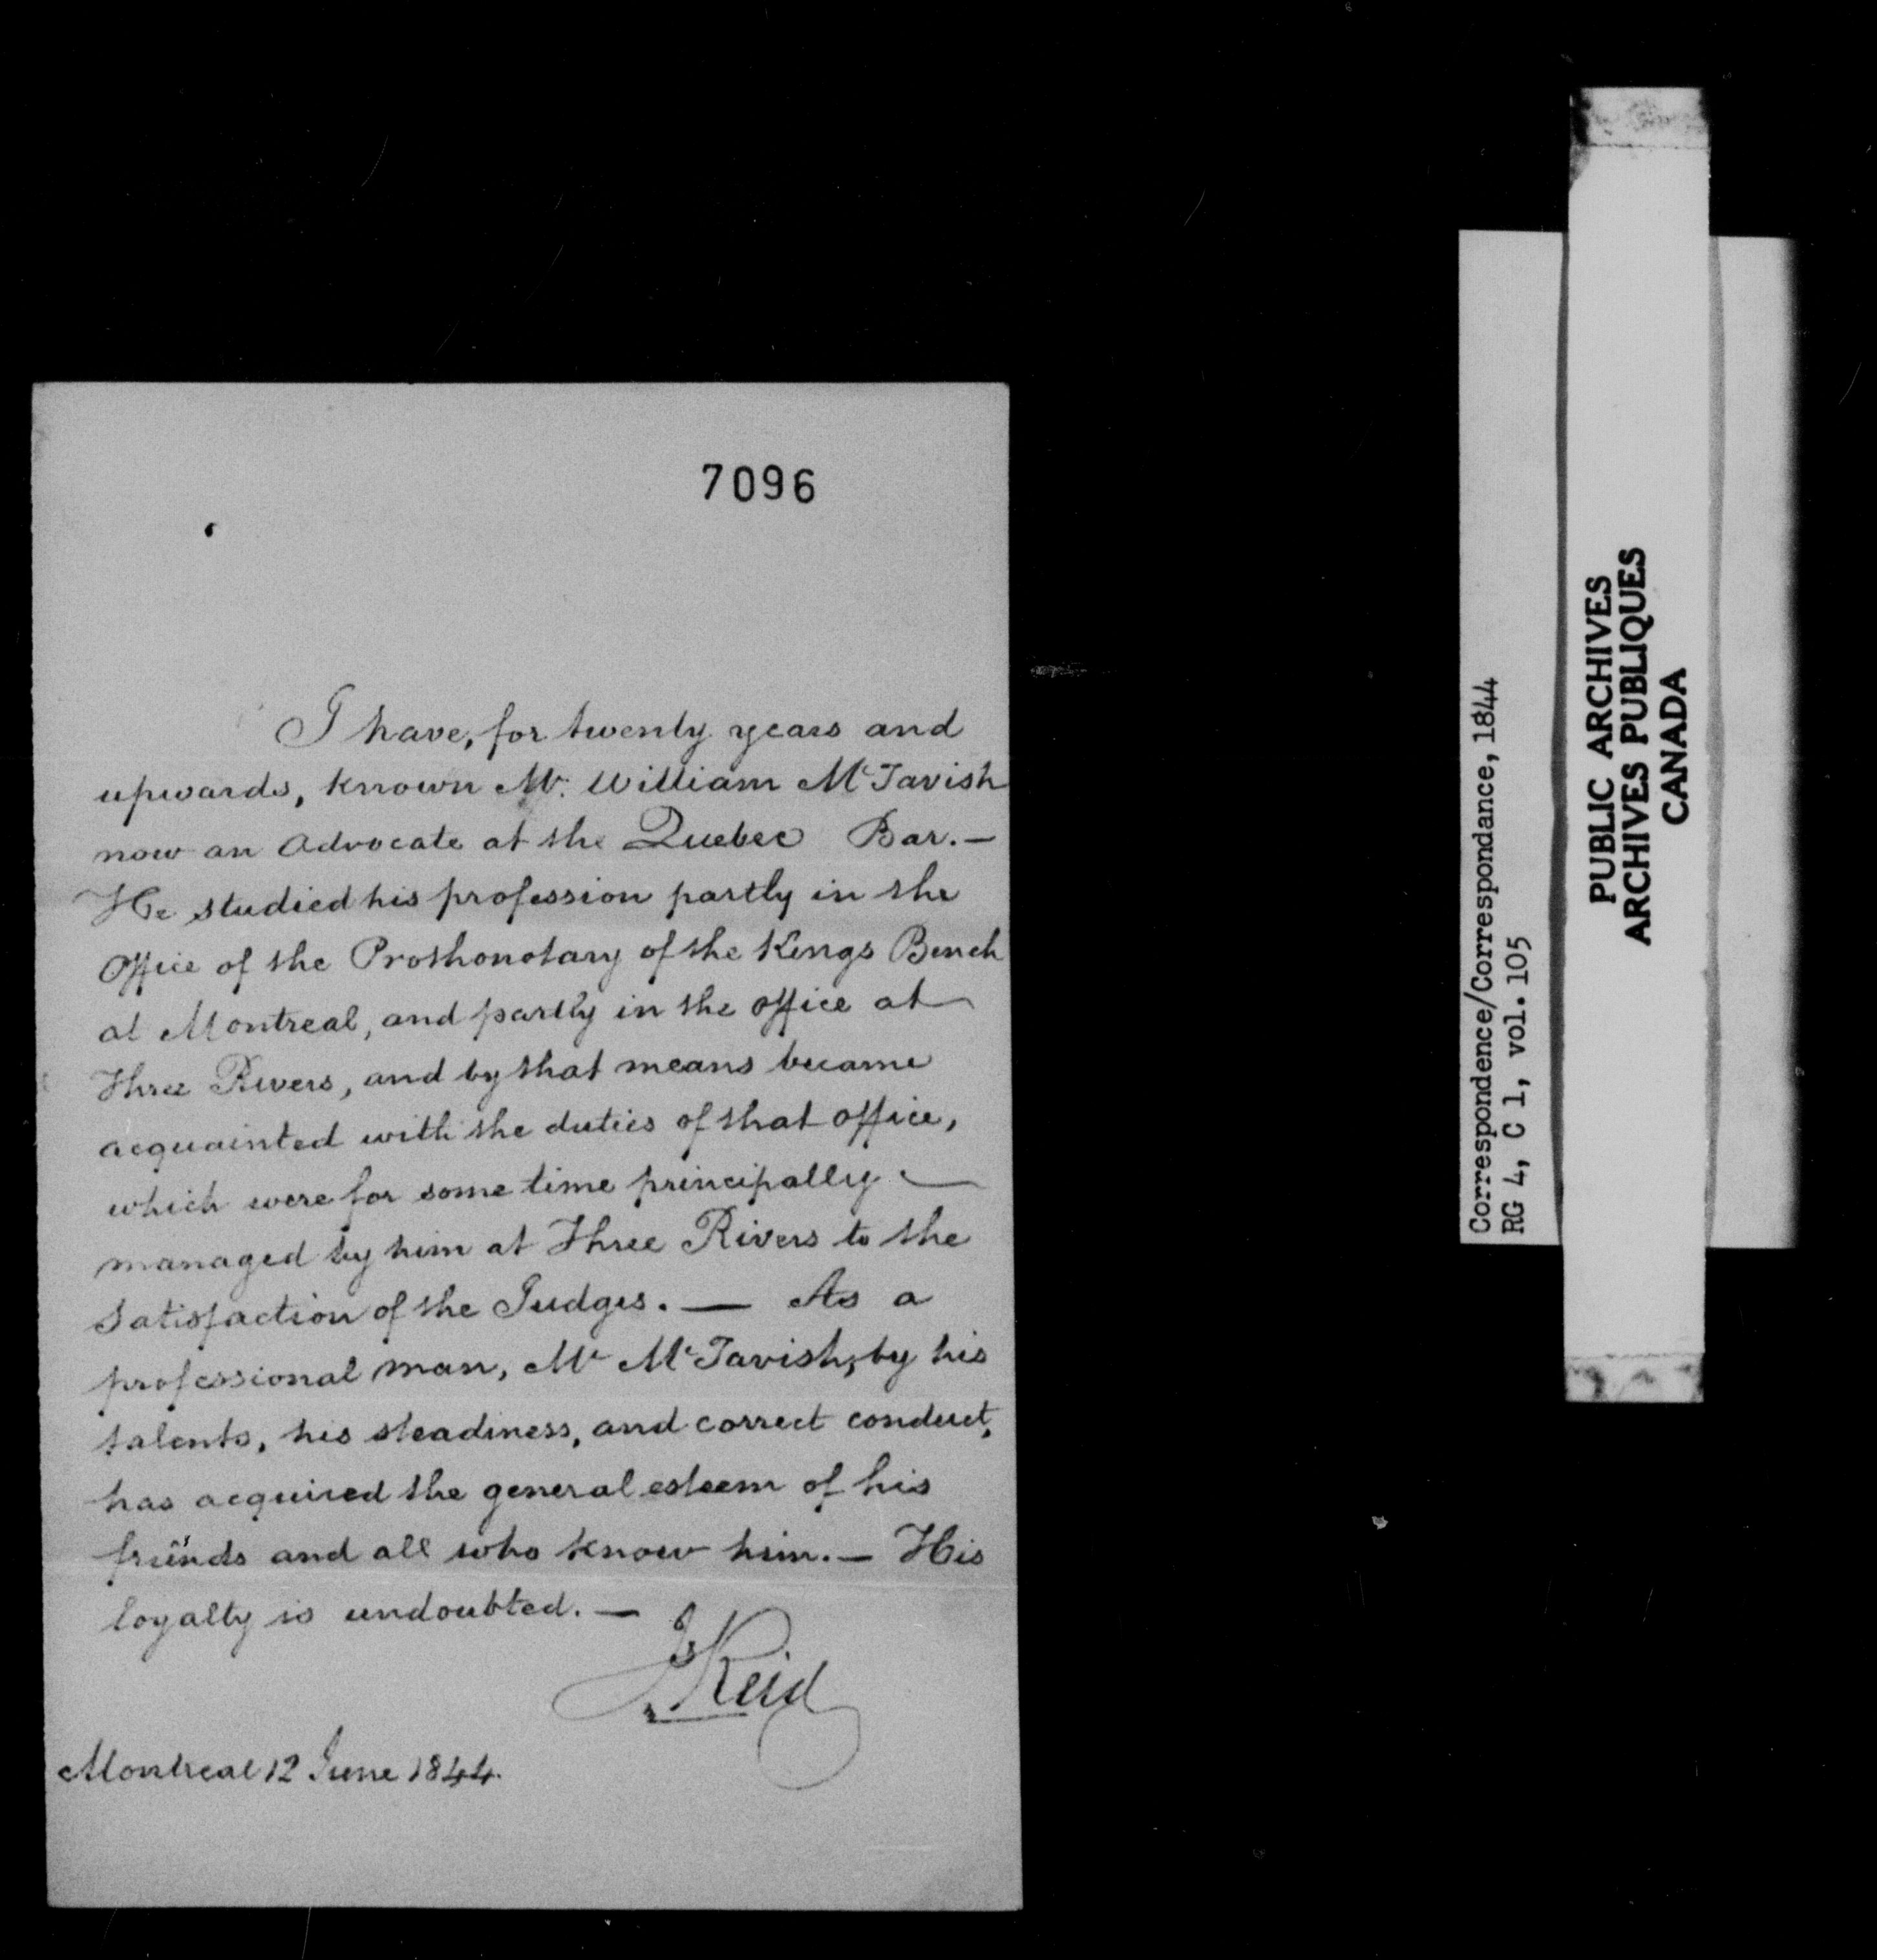 7096
I have, for twenty years and
upwards, known Mr. William McTavish
now an Advocate at the Quebec Bar. —
He studied his profession partly in the
Office of the Prothonotary of the Kings Bench
at Montreal, and partly in the office at
Three Rivers, and by that means became
acquainted with the duties of that office,
which were for some time principally —
managed by him at Three Rivers to the
Satisfaction of the Judges. — As a
professional man, Mr McTavish, by his
talents, his steadiness, and correct conduct,
has acquired the general esteem of his
friends and all who know him. — His
loyalty is undoubted. —
J Reid
Montreal 12 June 1844.
Correspondence/Correspondance, 1844
RG 4, C 1, vol. 105
PUBLIC ARCHIVES
ARCHIVES PUBLIQUES
CANADA